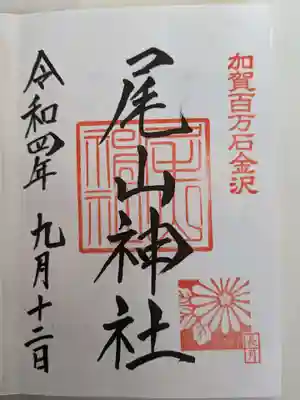 加賀百万石金沢
尾山神社
令和四年九月十二日